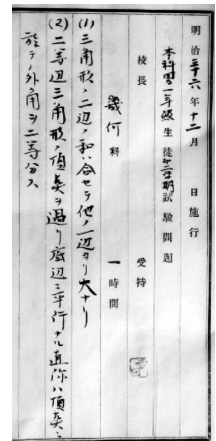 明治三十六年十二月 日施行
本科第一年級生徒第二学期試験問題
校長 受持
幾何科 一時間
(1) 三角形ノ二辺ノ和ハ合セテ他ノ一辺ヨリ大ナリ
(2) 二等辺三角形ノ頂点ヲ過リ底辺ニ平行ナル直線ハ頂点ニ
於テノ外角ヲ二等分ス